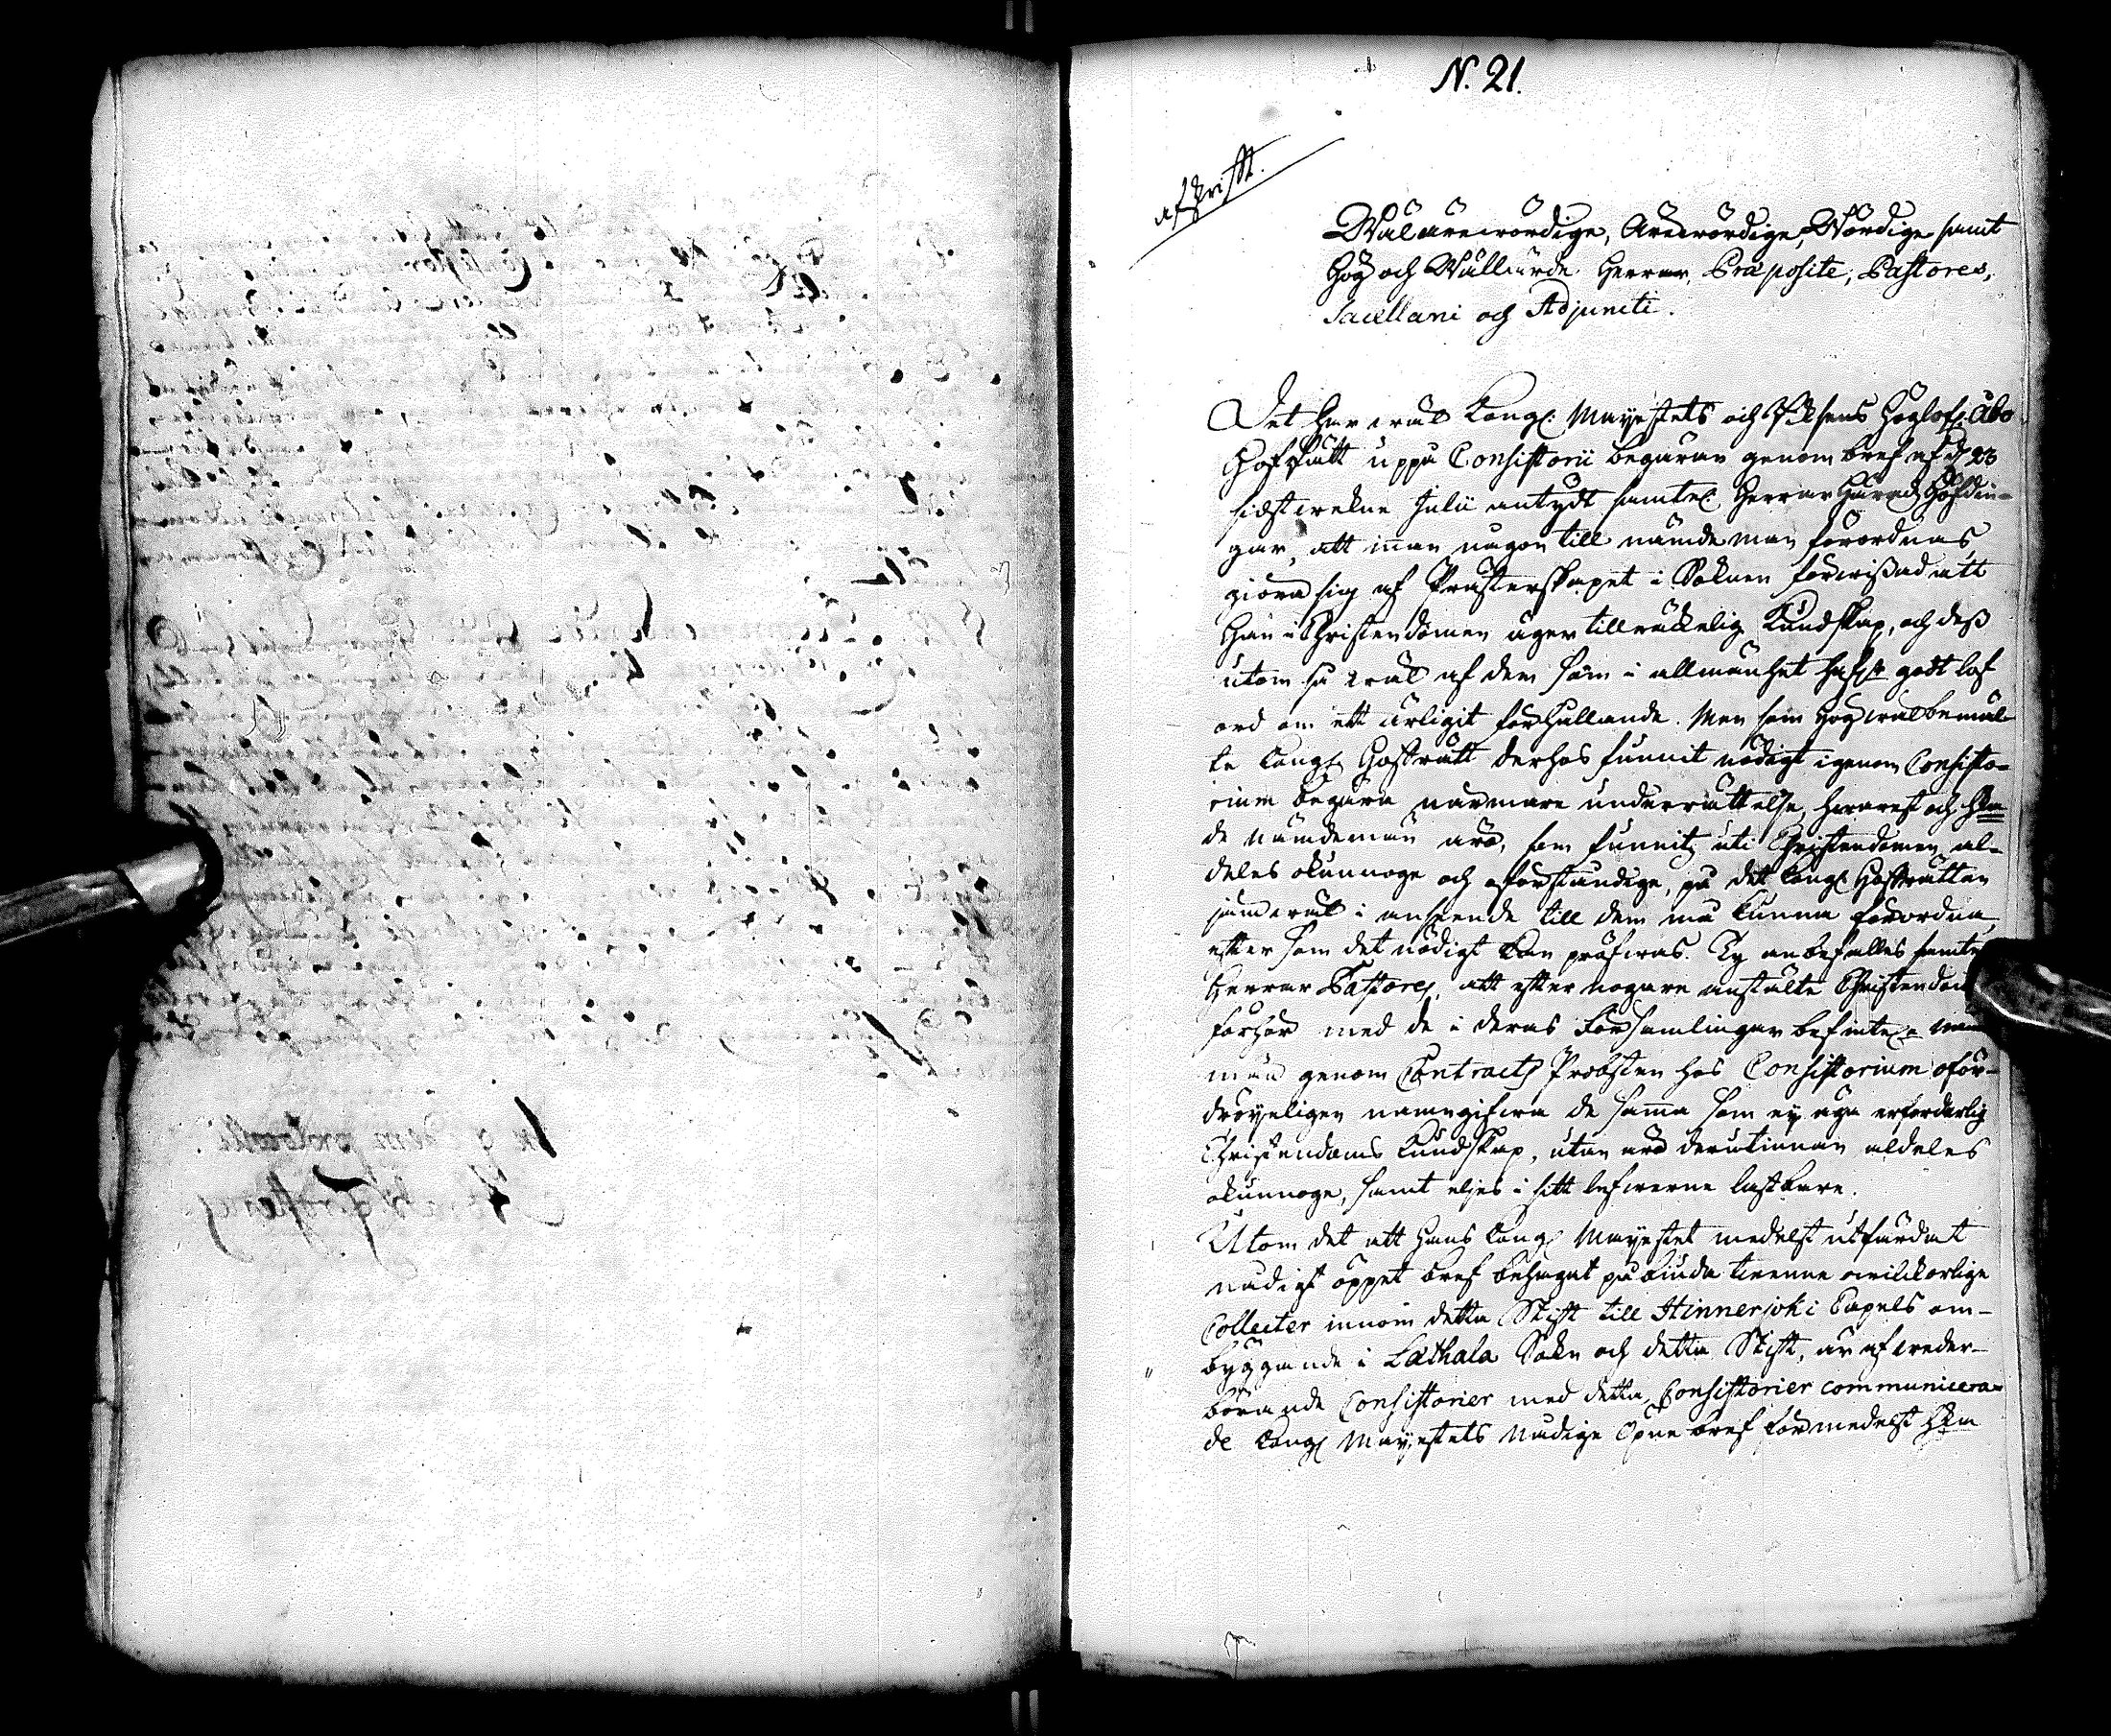 N. 21.
afskrifft.
Wälärewördige, Ärewördige, Wördige samt
Hög och Wällärde Herrar, Præposite, Pastores,
Sacellani och Adjuncti.
Det har wäl Kongl. Mayestets och Riksens Höglofl. Åbo
Hofrätt uppå Consistorii begäran genom bref af d. 23
sidstwekne Julii antydt samtel. Herrar Härads Höfdin-
gar, att innan någon till nämdeman förordnas,
giöra sig af Prästerskapet i Soknen förwissad att
Han i Christendomen äger tillräckelig Kundskap, och dess
utom så wäl af dem som i allmänhet hafwa godt lof
ord om ett ärligit förhållande. Men som högwälbemäl-
te Kongl. Hofrätt derhos funnit nödigt igenom Consisto-
rium begära närmare underrättelse, hwarest och
de nämdemän äro, som funnits uti Christendomen al-
deles okunnoge och oförståndige, på det Kongl. Hofrätten
jämwäl i anseende till dem må kunna förordna,
efter som det nödigt kan pröfwas. Ty anbefalles samtel.
Herrar Pastores, att efter nogare anstälte Christendoms
förhör med de i deras Församlingar befintel.
män genom Contracts Probsten hos Consistorium oför-
dröyeligen namngifwa de samma som ej äga erforderlig
Christendoms Kundskap, utan äro derutinnan aldeles
okunnoge, samt eljes i sitt lefwerne lastbare.
Utom det att Hans Kongl. Mayestet medelst utfärdat
nådigt öppet bref behagat påbiuda twenne owilkorlige
Collecter innom detta Stift till Hinnerjoki Capels om-
byggande i Læthala Sokn och detta Stift, är af weder-
börande Consistorier med detta Consistorier communicera-
de Kongl. Mayestets Nådige Öpne bref förmedelst